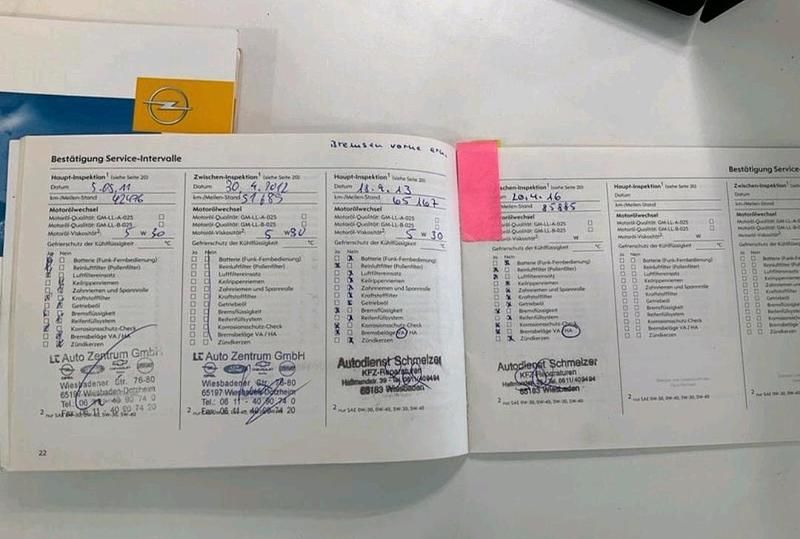 Bremsen vorne
Bestätigung Service-Intervalle
Haupt-Inspektion¹ (siehe Seite 20)
Datum 5.05.11
km-/Meilen-Stand 42476
Motorölwechsel
Motoröl-Qualität: GM-LL-A-025
Motoröl-Qualität: GM-LL-B-025
Motoröl-Viskosität²: 5 W 30
Gefrierschutz der Kühlflüssigkeit: °C
Ja Nein
Batterie (Funk-Fernbedienung)
Reinluftfilter (Pollenfilter)
Luftfiltereinsatz
Keilrippenriemen
Zahnriemen und Spannrolle
Kraftstofffilter
Getriebeöl
Bremsflüssigkeit
Reifenfüllsystem
Korrosionsschutz-Check
Bremsbeläge VA / HA
Zündkerzen
Auto Zentrum GmbH
Wiesbadener Str. 76-80
65197 Wiesbaden-Dotzheim
² Nur SAE 0W-30, 0W-40, 5W-30, 5W-40
22
Zwischen-Inspektion¹ (siehe Seite 20)
Datum 30.4.2012
km-/Meilen-Stand 51685
Motorölwechsel
Motoröl-Qualität: GM-LL-A-025
Motoröl-Qualität: GM-LL-B-025
Motoröl-Viskosität²: 5 W 30
Gefrierschutz der Kühlflüssigkeit: °C
Ja Nein
Batterie (Funk-Fernbedienung)
Reinluftfilter (Pollenfilter)
Luftfiltereinsatz
Keilrippenriemen
Zahnriemen und Spannrolle
Kraftstofffilter
Getriebeöl
Bremsflüssigkeit
Reifenfüllsystem
Korrosionsschutz-Check
Bremsbeläge VA / HA
Zündkerzen
Auto Zentrum GmbH
Wiesbadener Str. 76-80
65197 Wiesbaden-Dotzheim
Tel.: 06 11 - 40 90 74 0
Fax 06 11 - 40 90 74 20
² Nur SAE 0W-30, 0W-40, 5W-30, 5W-40
Haupt-Inspektion¹ (siehe Seite 20)
Datum 18.4.13
km-/Meilen-Stand 65167
Motorölwechsel
Motoröl-Qualität: GM-LL-A-025
Motoröl-Qualität: GM-LL-B-025
Motoröl-Viskosität²: 5 W 30
Gefrierschutz der Kühlflüssigkeit: °C
Ja Nein
Batterie (Funk-Fernbedienung)
Reinluftfilter (Pollenfilter)
Luftfiltereinsatz
Keilrippenriemen
Zahnriemen und Spannrolle
Kraftstofffilter
Getriebeöl
Bremsflüssigkeit
Reifenfüllsystem
Korrosionsschutz-Check
Bremsbeläge VA / HA
Zündkerzen
Autodienst Schmelzer
KFZ-Reparaturen
65183 Wiesbaden
² Nur SAE 0W-30, 0W-40, 5W-30, 5W-40
Bestätigung Service
schen-Inspektion¹ (siehe Seite 20)
20.4.16
Meilen-Stand 85885
Motoröl-Viskosität²:
Gefrierschutz der Kühlflüssigkeit: °C
Ja Nein
Batterie (Funk-Fernbedienung)
Reinluftfilter (Pollenfilter)
Luftfiltereinsatz
Keilrippenriemen
Zahnriemen und Spannrolle
Kraftstofffilter
Getriebeöl
Bremsflüssigkeit
Reifenfüllsystem
Korrosionsschutz-Check
Bremsbeläge VA / HA
Zündkerzen
Autodienst Schmelzer
KFZ-Reparaturen
65183 Wiesbaden
² Nur SAE 0W-30, 0W-40, 5W-30, 5W-40
Haupt-Inspektion¹ (siehe Seite 20)
Datum
km-/Meilen-Stand
Motorölwechsel
Motoröl-Qualität: GM-LL-A-025
Motoröl-Qualität: GM-LL-B-025
Motoröl-Viskosität²: W
Gefrierschutz der Kühlflüssigkeit: °C
Ja Nein
Batterie (Funk-Fernbedienung)
Reinluftfilter (Pollenfilter)
Luftfiltereinsatz
Keilrippenriemen
Zahnriemen und Spannrolle
Kraftstofffilter
Getriebeöl
Bremsflüssigkeit
Reifenfüllsystem
Korrosionsschutz-Check
Bremsbeläge VA / HA
Zündkerzen
² Nur SAE 0W-30, 0W-40, 5W-30, 5W-40
Zwischen-Inspektion
Datum
km-/Meilen-Stand
Motorölwechsel